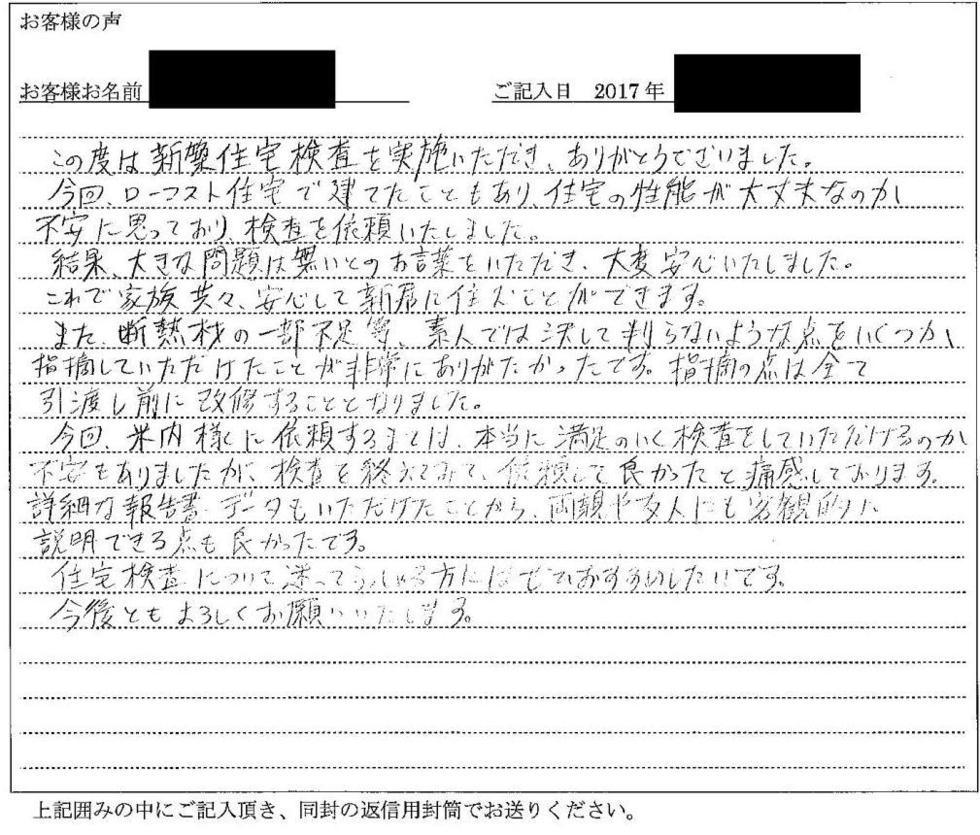 お客様の声
お客様お名前 ご記入日 2017年
この度は新築住宅検査を実施いただき、ありがとうございました。
今回、ローコスト住宅で建てたこともあり、住宅の性能が大丈夫なのか
不安に思っており、検査を依頼いたしました。
結果、大きな問題は無いとのお言葉をいただき、大変安心いたしました。
これで家族共々、安心して新居に住むことができます。
また、断熱材の一部不足等、素人では決して判らないような点をいくつか
指摘していただけたことが非常にありがたかったです。指摘の点は全て
引渡し前に改修することとなりました。
今回、米内様に依頼するまでは、本当に満足のいく検査をしていただけるのか
不安もありましたが、検査を終えてみて、依頼して良かったと痛感しております。
詳細な報告書、データもいただけたことから、両親や友人にも客観的に
説明できる点も良かったです。
住宅検査について迷ってらっしゃる方にはぜひおすすめしたいです。
今後ともよろしくお願いいたします。
上記囲みの中にご記入頂き、同封の返信用封筒でお送りください。